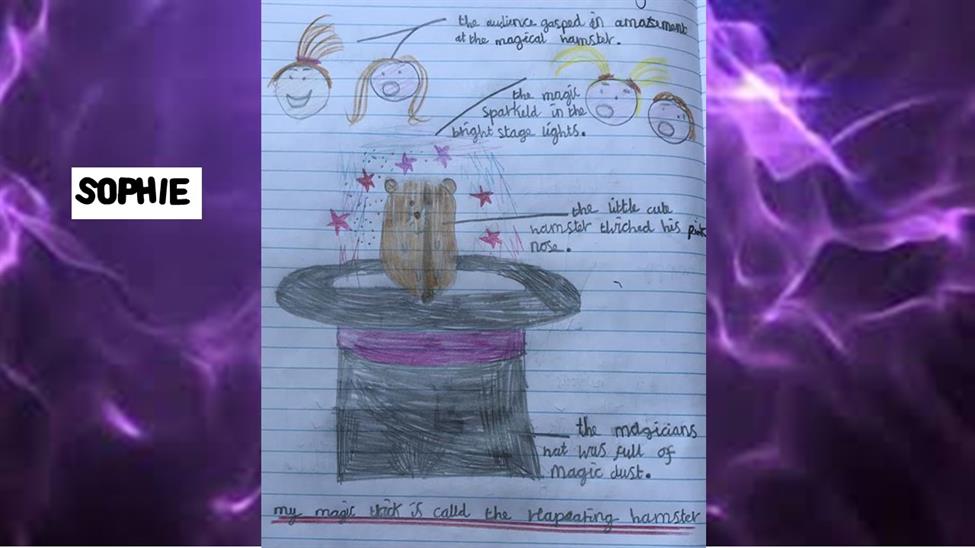 the audience gasped in amazement
at the magical hamster.
the magic
sparkeld in the
bright stage lights.
SOPHIE
the little cute
hamster twiched his pink
nose.
the magicians
hat was full of
magic dust.
my magic trick is calld the reapeating hamster